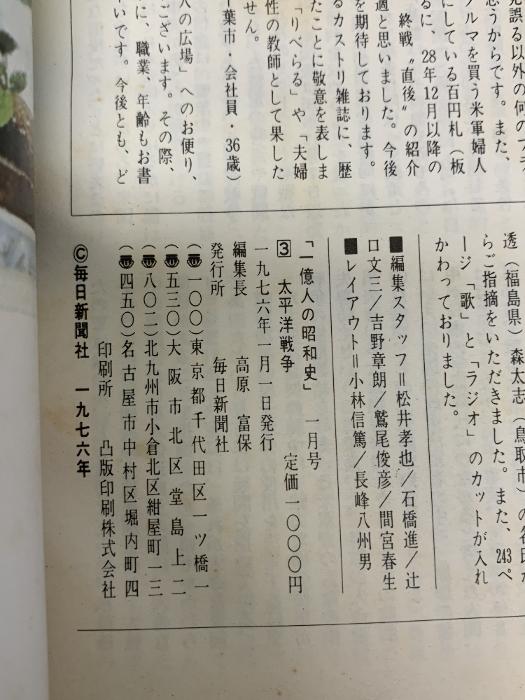 見誤る以外の何のフラ
思うからです。また、
クルマを買う米軍婦人
にしている百円札(板
るに、28年12月以降の
終戦〝直後〟の紹介
適と思いました。今後
を期待しております。
るカストリ雑誌に、歴
たことに敬意を表しま
「りべらる」や「夫婦
性の教師として果した
せん。
葉市・会社員・36歳)
人の広場」へのお便り、
ございます。その際、
に、職業、年齢もお書
いです。今後とも、ど
透(福島県)森太志(鳥取市)の各氏か
らご指摘をいただきました。また、243ペ
ージ「歌」と「ラジオ」のカットが入れ
かわっておりました。
■編集スタッフ=松井孝也/石橋進/辻
口文三/吉野章朗/鷲尾俊彦/間宮春生
■レイアウト=小林信篤/長峰八州男
「一億人の昭和史」 一月号
3 太平洋戦争 定価一〇〇〇円
一九七六年一月一日発行
編集長 高原 富保
発行所 毎日新聞社
(〒一〇〇)東京都千代田区一ツ橋一
(〒五三〇)大阪市北区堂島上二
(〒八〇二)北九州市小倉北区紺屋町一三
(〒四五〇)名古屋市中村区堀内町四
印刷所 凸版印刷株式会社
©毎日新聞社 一九七六年